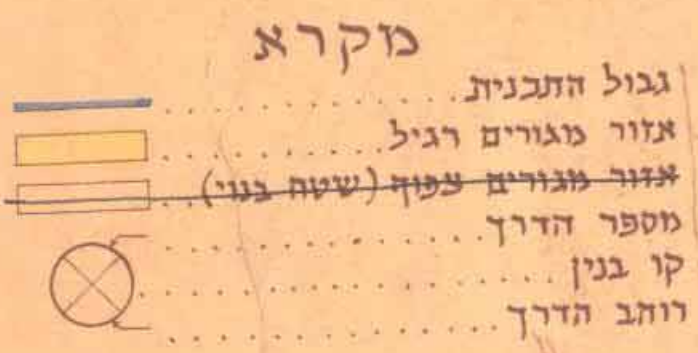 מקרא
גבול התכנית
אזור מגורים רגיל
אזור מגורים צפוף (שטח בנוי)
מספר הדרך
קו בנין
רוחב הדרך